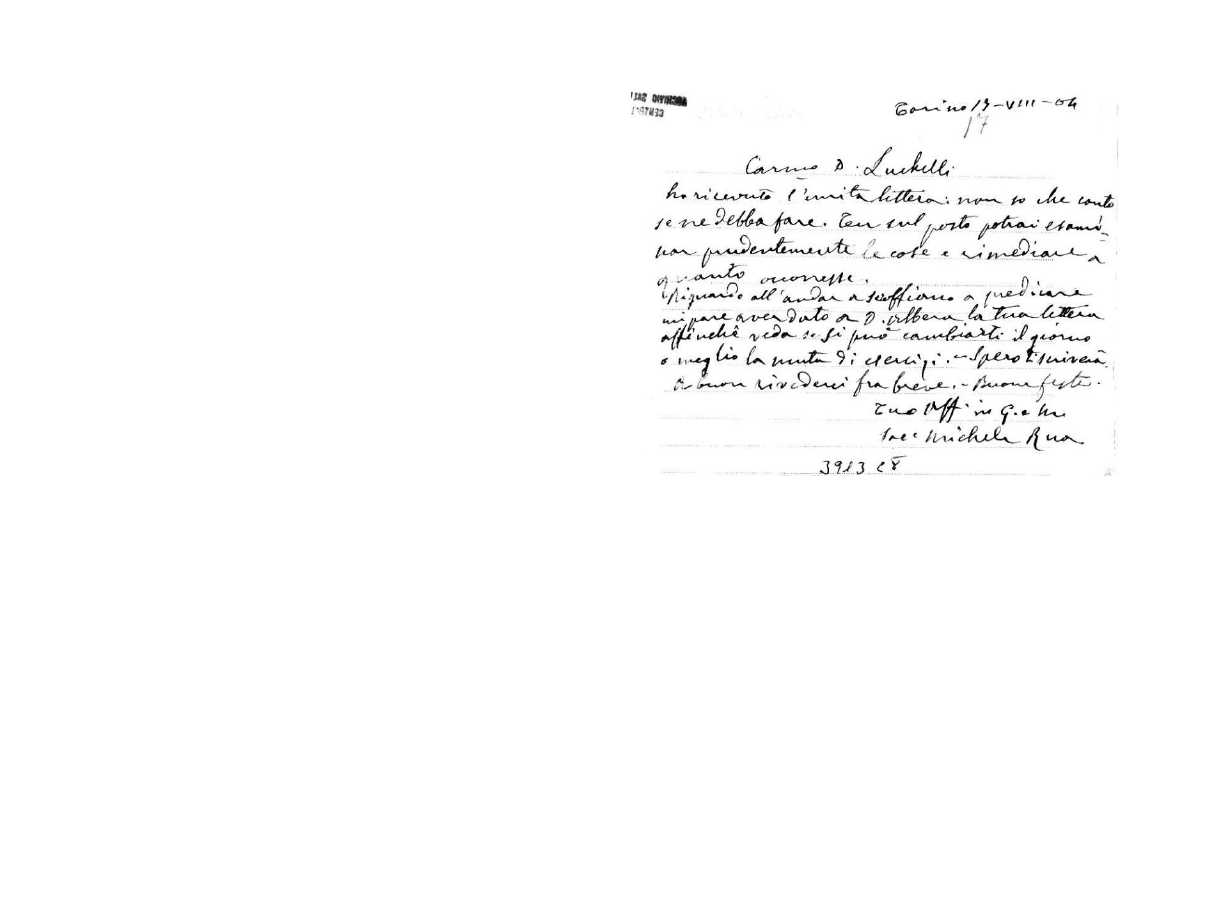 ARCHIVIO SAL
CENTRAL
Torino 13-VIII-04
17
Car.mo D. Luchelli
ho ricevuto l'unita lettera: non so che conto
se ne debba fare. Tu sul posto potrai esami-
nar prudentemente le cose e rimediare a
quanto occorresse.
Riguardo all'andar a Scoffiano a predicare
mi pare aver dato a D. Albera la tua lettera
affinchè veda se si può cambiarti il giorno
o meglio la muta di esercizi. - Spero ti scriverà.
A buon rivederci fra breve. - Buone feste.
Tuo aff. in G. e M.
Sac. Michele Rua
3913 C8